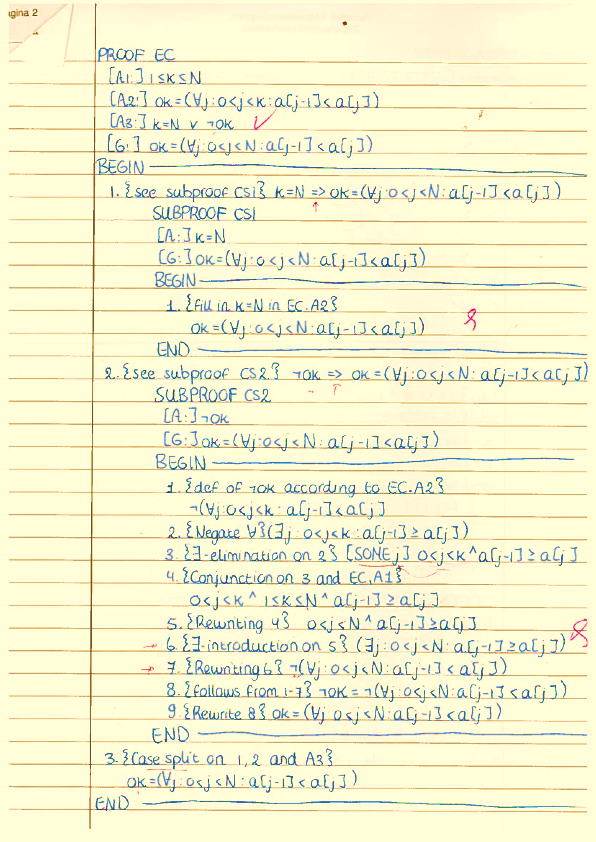 agina 2
PROOF EC
[A1:] 1≤K≤N
[A2:] OK=(∀j:0<j<K:a[j-1]<a[j])
[A3:] K=N ∨ ¬OK
[G:] OK=(∀j:0<j<N:a[j-1]<a[j])
BEGIN
1. {see subproof CS1} K=N => OK=(∀j:0<j<N:a[j-1]<a[j])
SUBPROOF CS1
[A:] K=N
[G:] OK=(∀j:0<j<N:a[j-1]<a[j])
BEGIN
1. {fill in K=N in EC.A2}
OK=(∀j:0<j<N:a[j-1]<a[j])
END
2. {see subproof CS2.} ¬OK => OK=(∀j:0<j<N:a[j-1]<a[j])
SUBPROOF CS2
[A:] ¬OK
[G:] OK=(∀j:0<j<N:a[j-1]<a[j])
BEGIN
1. {def of ¬OK according to EC.A2}
¬(∀j:0<j<K:a[j-1]<a[j]
2. {Negate ∀}(∃j:0<j<K:a[j-1]≥a[j])
3. {∃-elimination on 2} [SOME j] 0<j<K^a[j-1]≥a[j]
4. {Conjunction on 3 and EC,A1}
0<j<K^ 1≤K≤N^a[j-1]≥a[j]
5. {Rewriting 4} 0<j<N^a[j-1]≥a[j]
6. {∃-introduction on 5} (∃j:0<j<N:a[j-1]≥a[j])
7. {Rewriting 6} ¬(∀j:0<j<N:a[j-1]<a[j])
8. {follows from 1-7} ¬OK=¬(∀j:0<j<N:a[j-1]<a[j])
9. {Rewrite 8} OK=(∀j 0<j<N:a[j-1]<a[j])
END
3. {Case split on 1,2 and A3}
OK=(∀j:0<j<N:a[j-1]<a[j])
END